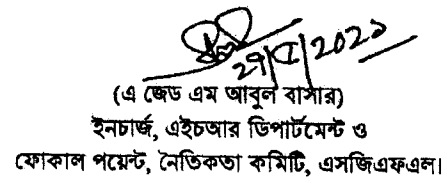 ২৭/৫/২০২১
(এ জেড এম আবুল বাসার)
ইনচার্জ, এইচআর ডিপার্টমেন্ট ও
ফোকাল পয়েন্ট, নৈতিকতা কমিটি, এসজিএফএল।